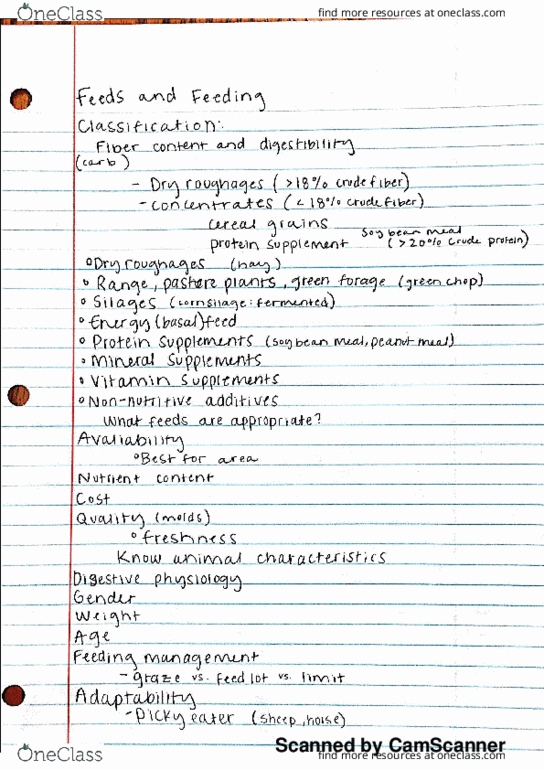 OneClass
find more resources at oneclass.com
Feeds and Feeding
Classification:
Fiber content and digestibility
(carb)
- Dry roughages (>18% crude fiber)
- concentrates (<18% crude fiber)
cereal grains
protein supplement soybean meal (>20% crude protein)
° Dry roughages (hay)
° Range, pasture plants, green forage (green chop)
° Silages (cornsilage: fermented)
° Energy (basal) feed
° Protein Supplements (soybean meal, peanut meal)
° Mineral Supplements
° Vitamin Supplements
° Non-nutritive additives
What feeds are appropriate?
Avaliability
° Best for area
Nutrient content
Cost
Quality (molds)
° freshness
Know animal characteristics
Digestive physiology
Gender
Weight
Age
Feeding management
- graze vs. feed lot vs. limit
Adaptability
- Picky eater (sheep, horse)
Scanned by CamScanner
OneClass
find more resources at oneclass.com